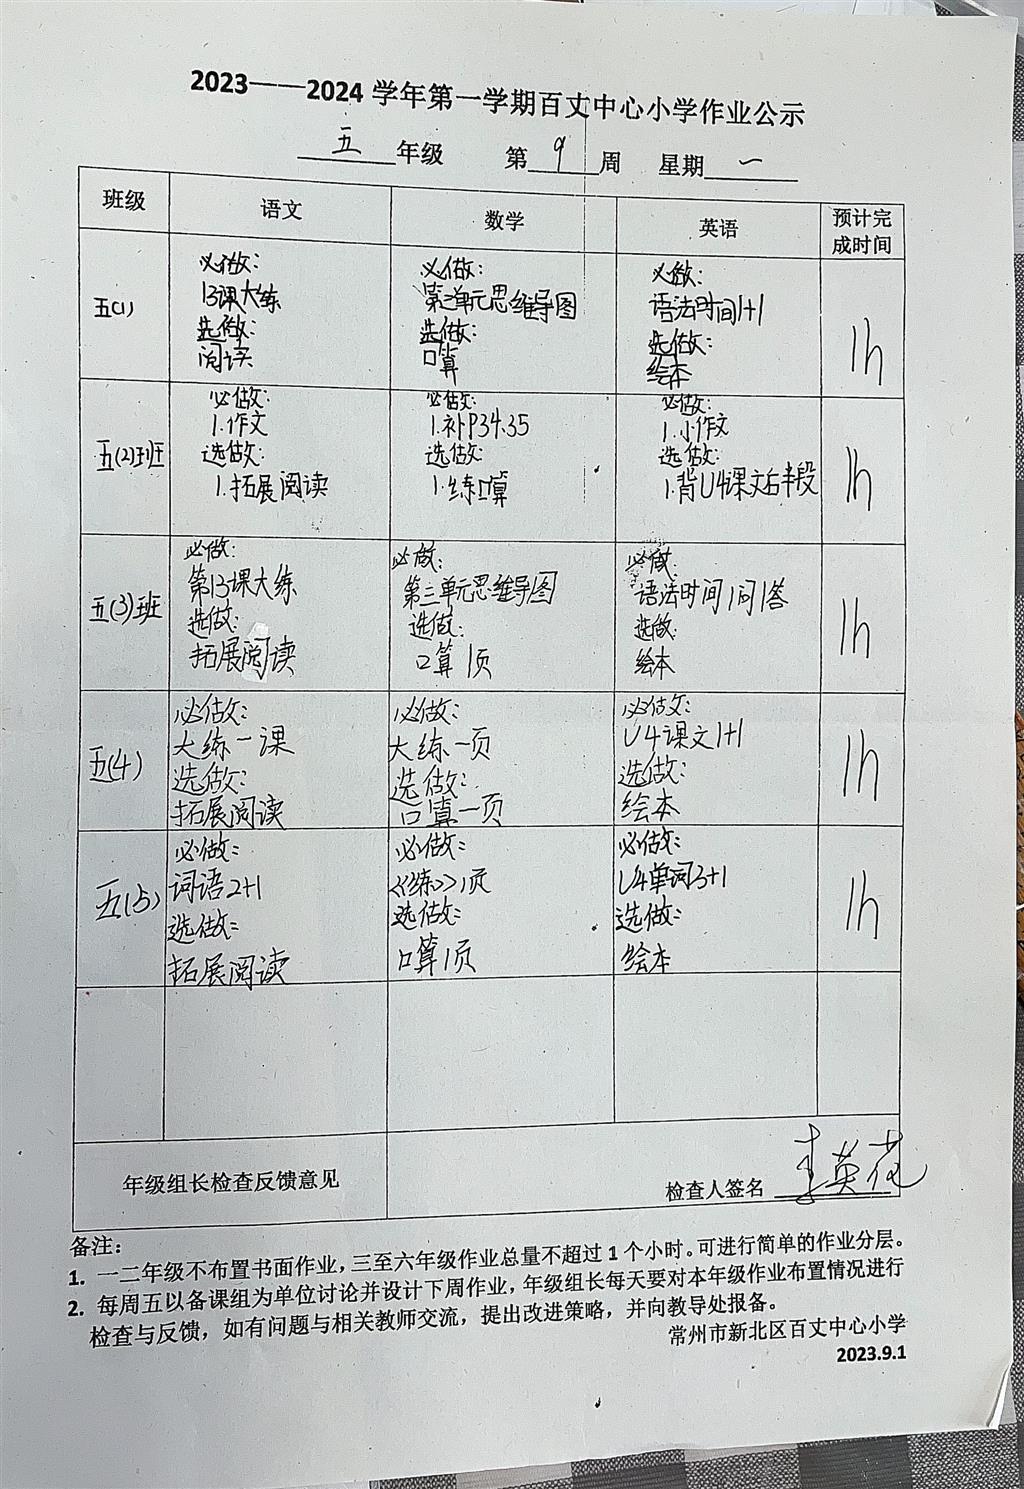 2023——2024 学年第一学期百丈中心小学作业公示
五 年级 第 9 周 星期 一
班级 语文 数学 英语 预计完成时间
五(1)
必做：
13课大练
选做：
阅读
必做：
第三单元思维导图
选做：
口算
必做：
语法时间1+1
选做：
绘本
1h
五(2)班
必做：
1.作文
选做：
1.拓展阅读
必做：
1.补P34.35
选做：
1.练口算
必做：
1.小作文
选做：
1.背U4课文后半段
1h
五(3)班
必做：
第13课大练
选做：
拓展阅读
必做：
第三单元思维导图
选做：
口算1页
必做：
语法时间1问1答
选做：
绘本
1h
五(4)
必做：
大练一课
选做：
拓展阅读
必做：
大练一页
选做：
口算一页
必做：
U4课文1+1
选做：
绘本
1h
五(5)
必做：
词语2+1
选做：
拓展阅读
必做：
《练》1页
选做：
口算1页
必做：
U4单词3+1
选做：
绘本
1h
年级组长检查反馈意见
检查人签名 李英花
备注：
1. 一二年级不布置书面作业，三至六年级作业总量不超过 1 个小时。可进行简单的作业分层。
2. 每周五以备课组为单位讨论并设计下周作业，年级组长每天要对本年级作业布置情况进行
检查与反馈，如有问题与相关教师交流，提出改进策略，并向教导处报备。
常州市新北区百丈中心小学
2023.9.1